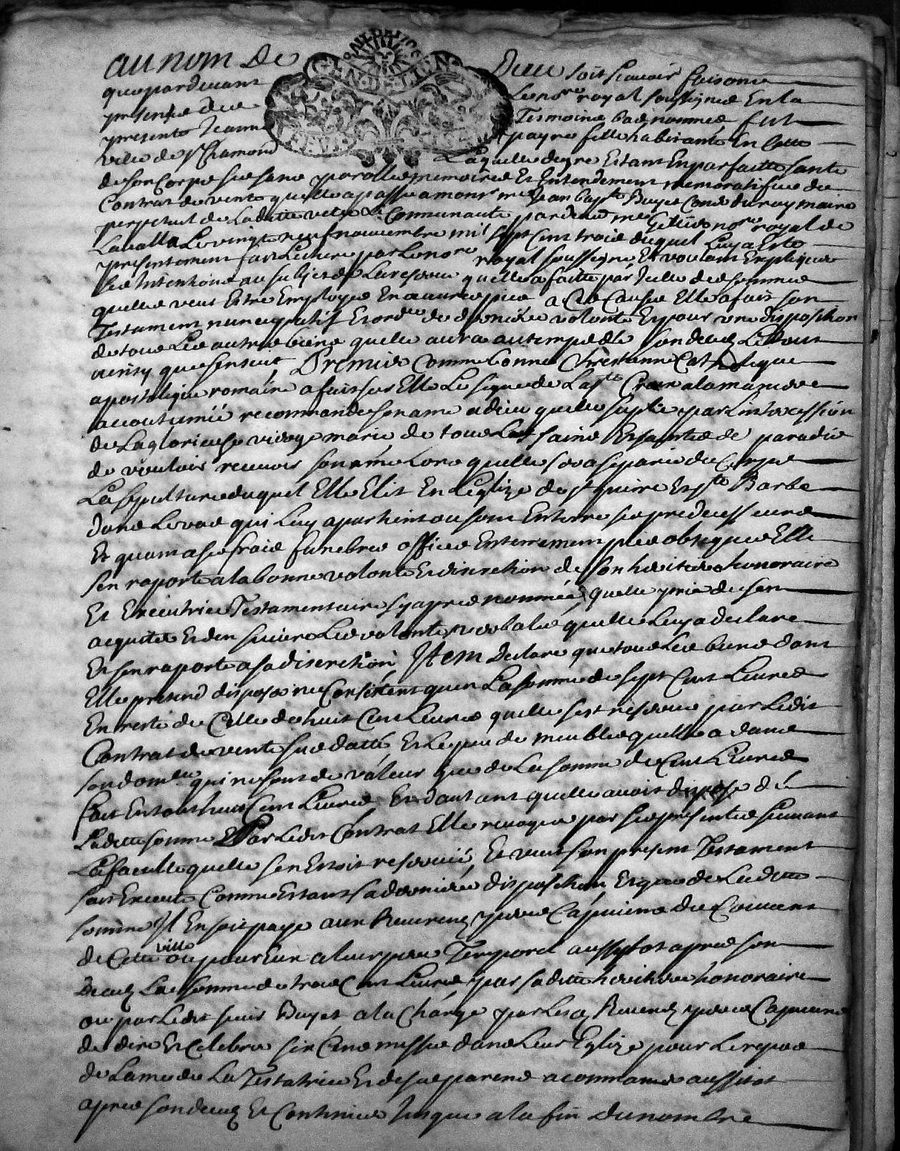 au nom de Dieu soit scavoir faisons
que pardevant le no.re royal soussigné en la
presence de tesmoins bas nommés fut
presente Jeanne payre fille habitante en cette
ville de St Chamond Laquelle de gre Estant En parfaitte santé
de son Corps ses sens parolle memoire Et Entendement memorative du
Contrat de vente quelle a passé a mons.r m.re Jean bap.te Buyet Cons.er du roy maire
perpetuel de Laditte ville Communauté par devant no.re royal de
Lavalla Le vingt neuf novembre mil sept Cent trois duquel Luy a Esté
presentement fait Lecture par Le no.re royal soussigné Et voulant Expliquer
ses Intentions au subject de La reserve quelle a faitte par Icelle de somme
quelle veut Estre Employée En œuvres pies a Ces Causes Elle a fait son
Testament nuncupatif Et ordce de derniere volonté Et pour une disposition
de tous Les autres biens quelle aura au temps de son deces Le tout
ainsy que sensuit Premier Comme bonne Chrestienne Catholique
apostolique romaine a fait sur Elle Le signe de La s.te Croix a la maniere
accoutumée recommandé son ame a dieu quelle suplie par Lintercession
de La glorieuse vierge marie de tous Les saints Et saintes de paradis
de vouloir recevoir son ame Lors quelle sera separée du Corps
La sepulture duquel Elle Elit En Leglize de St Ennemond Et S.te Barbe
dans Le vas qui Luy apartient ou sont Enterrés ses predecesseurs
Et quant a ses frais funebres offices Enterrement pies obseques Elle
sen raporte a la bonne volonté Et discretion de son heritiere honoraire
Et Executrice Testamentaire sy apres nommée, quelle prie de sen
acquitter Et den suivre Les volontés verbales quelle Luy a declaré
Et sen raporte a sa discretion, Item declare que tous Les biens dont
Elle pretend disposer ne Consistent quen La somme de sept Cent Livres
En reste de Celle de huit Cent Livres quelle sest reservée par Ledit
Contrat de vente susdatté Et Le peu de meubles quelle a dans
son dom.lle qui ne sont de valeur que de La somme de Cent Livres
fait En tout huit Cent Livres Et dautant quelle avoit disposé de
Laditte somme Par Ledit Contrat Elle revoque par ses presentes suivant
La faculté quelle sen Estoit reservée, Et veut son present Testament
soit Executé Comme Estant sa derniere disposition Et que de Laditte
somme Il En soit payé aux Reverends peres Capucins du Couvent
de Cette ville ou pour Eux a leur pere Temporel aussytot apres son
deces La somme de trois Cent Livres par saditte heritiere honoraire
ou par Ledit sieur Buyet a la Charge par Lesd. Reverends peres Capucins
de dire Et Celebrer six Cens messes dans Leur Eglize pour Le repos
de Lame de La Testatrice Et de ses parens a commencer aussitot
apres son deces Et Continuer Jusques a la fin du nombre